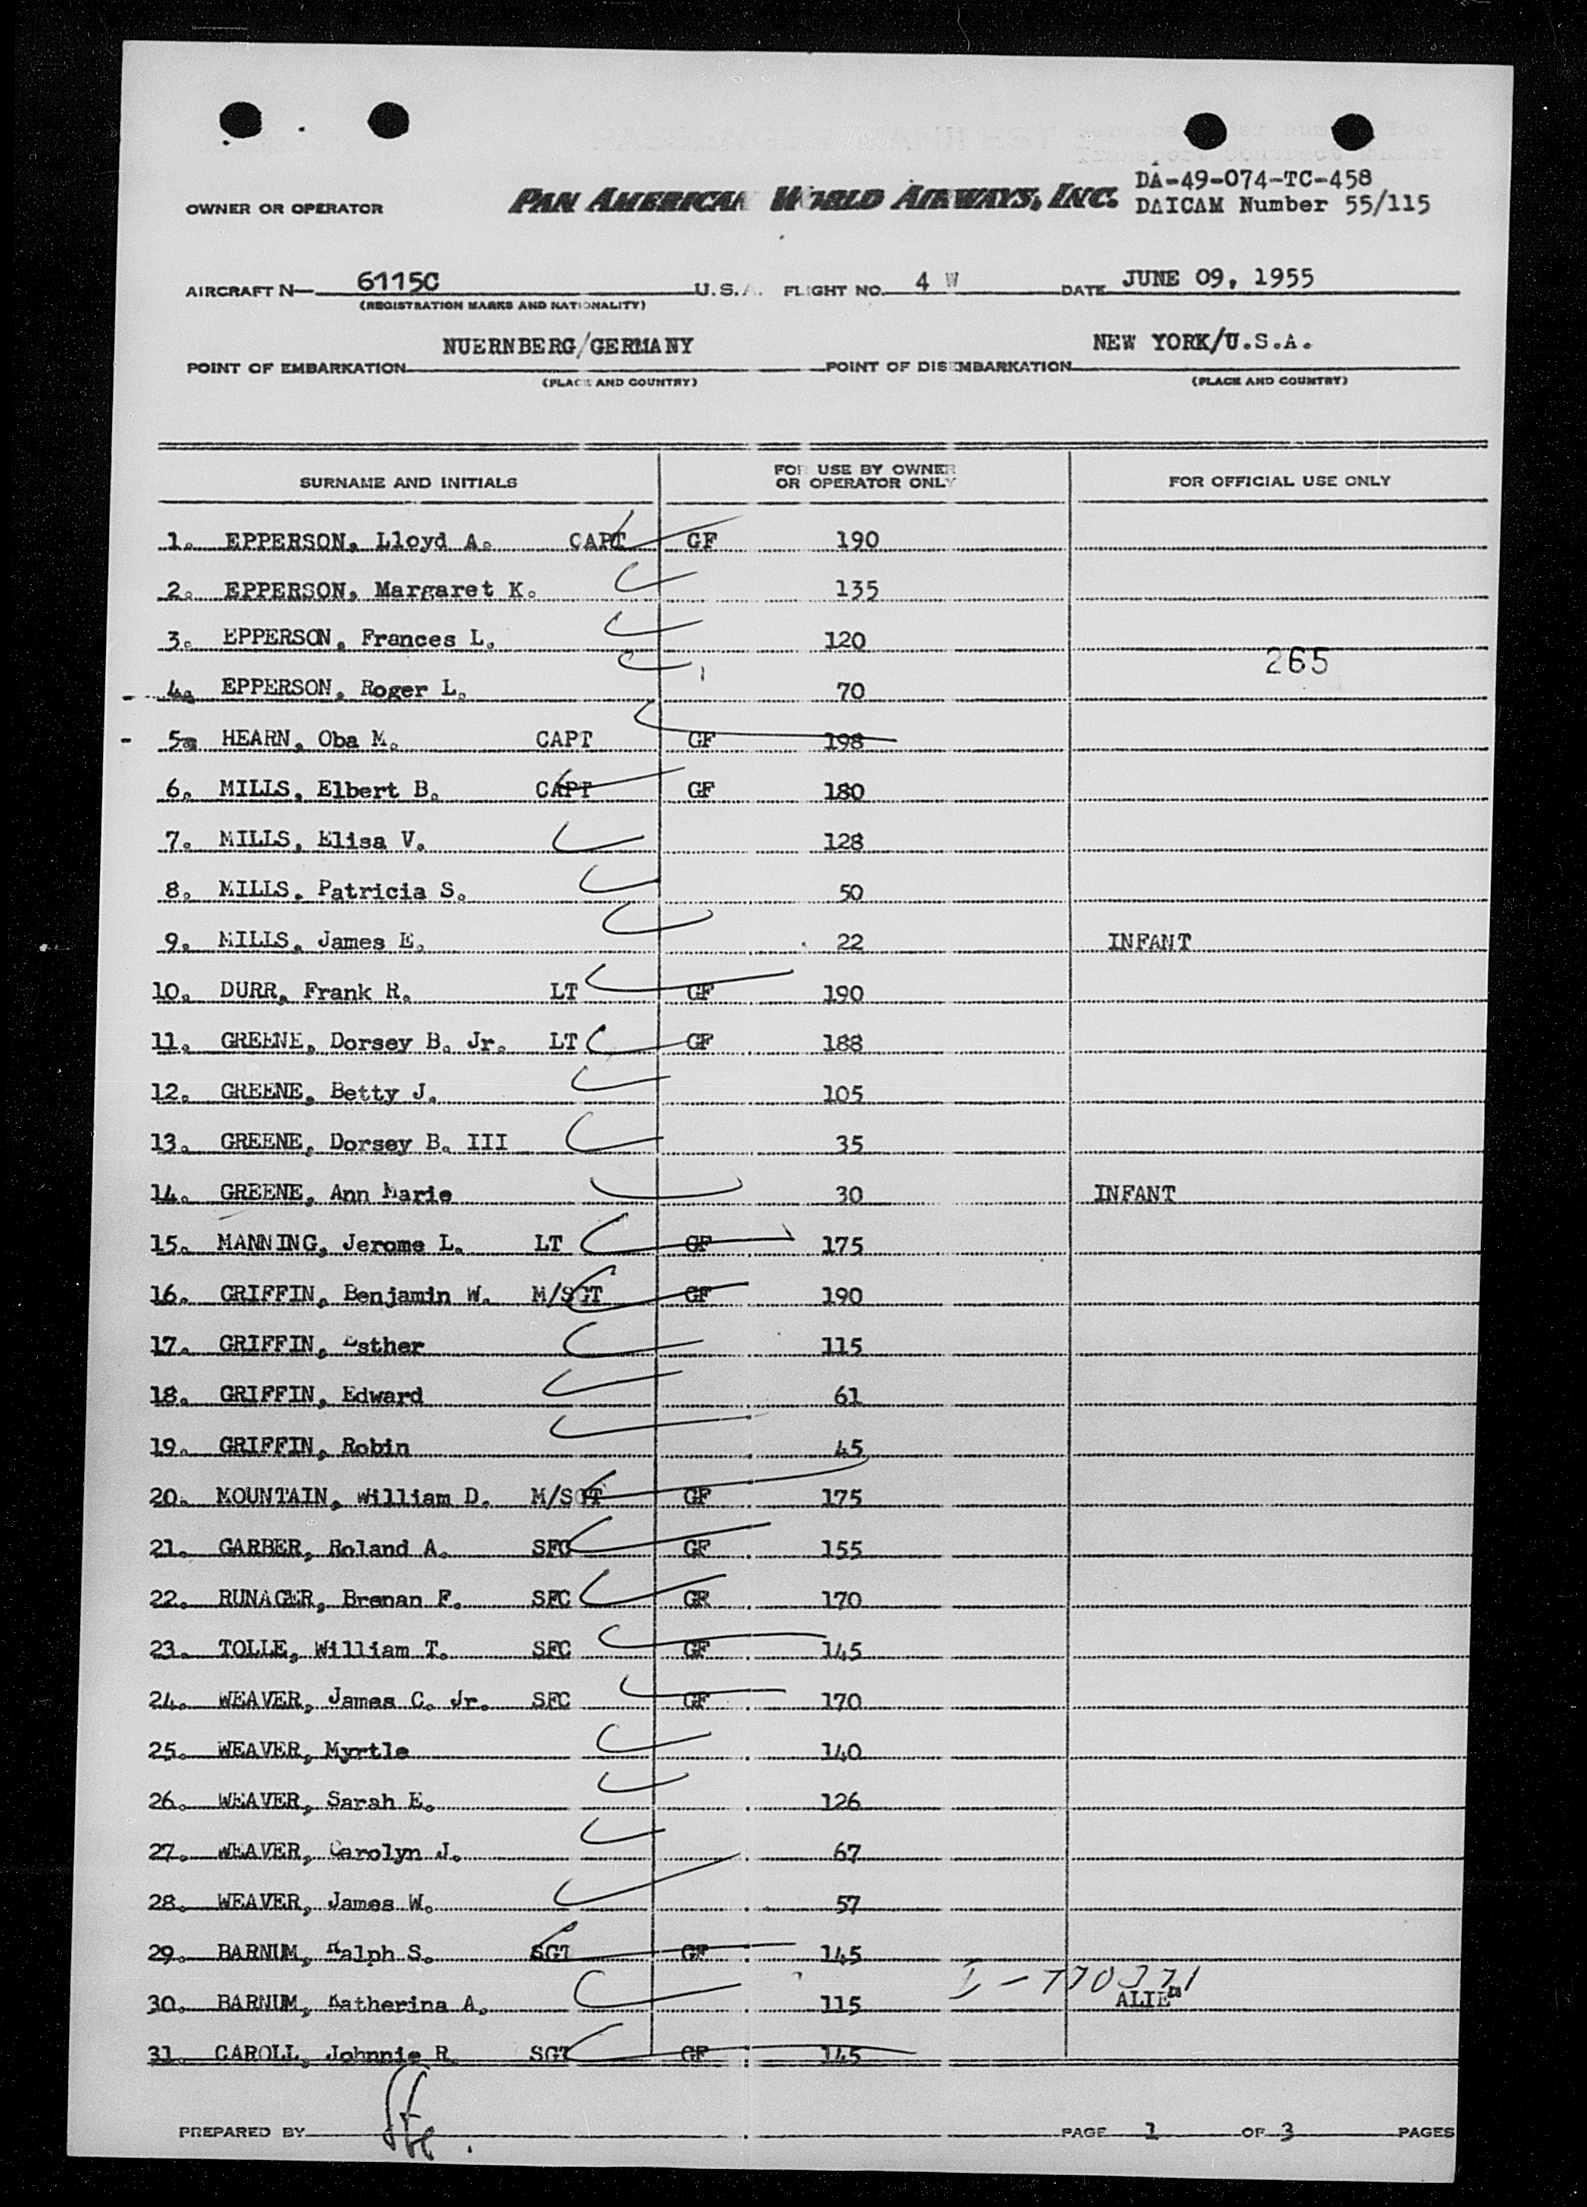 DA-49-074-TC-458
OWNER OR OPERATOR PAN AMERICAN WORLD AIRWAYS, INC. DAICAM Number 55/115
AIRCRAFT N— 6115C U.S.A. FLIGHT NO. 4 W DATE JUNE 09, 1955
(REGISTRATION MARKS AND NATIONALITY)
NUERNBERG/GERMANY NEW YORK/U.S.A.
POINT OF EMBARKATION POINT OF DISEMBARKATION
(PLACE AND COUNTRY) (PLACE AND COUNTRY)
SURNAME AND INITIALS FOR USE BY OWNER OR OPERATOR ONLY FOR OFFICIAL USE ONLY
1. EPPERSON, Lloyd A. CAPT GF 190
2. EPPERSON, Margaret K. 135
3. EPPERSON, Frances L. 120
265
4. EPPERSON, Roger L. 70
5. HEARN, Oba M. CAPT GF 198
6. MILLS, Elbert B. CAPT GF 180
7. MILLS, Elisa V. 128
8. MILLS, Patricia S. 50
9. MILLS, James E. 22 INFANT
10. DURR, Frank R. LT GF 190
11. GREENE, Dorsey B. Jr. LT GF 188
12. GREENE, Betty J. 105
13. GREENE, Dorsey B. III 35
14. GREENE, Ann Marie 30 INFANT
15. MANNING, Jerome L. LT GF 175
16. GRIFFIN, Benjamin W. M/SGT GF 190
17. GRIFFIN, Esther 115
18. GRIFFIN, Edward 61
19. GRIFFIN, Robin 45
20. MOUNTAIN, William D. M/SGT GF 175
21. GARBER, Roland A. SFC GF 155
22. RUNAGER, Brenan F. SFC GR 170
23. TOLLE, William T. SFC GF 145
24. WEAVER, James C. Jr. SFC GF 170
25. WEAVER, Myrtle 140
26. WEAVER, Sarah E. 126
27. WEAVER, Carolyn J. 67
28. WEAVER, James W. 57
29. BARNUM, Ralph S. SGT GF 145
30. BARNUM, Katherina A. 115 ALIEN
31. CAROLL, Johnnie R. SGT GF 145
PREPARED BY PAGE 1 OF 3 PAGES